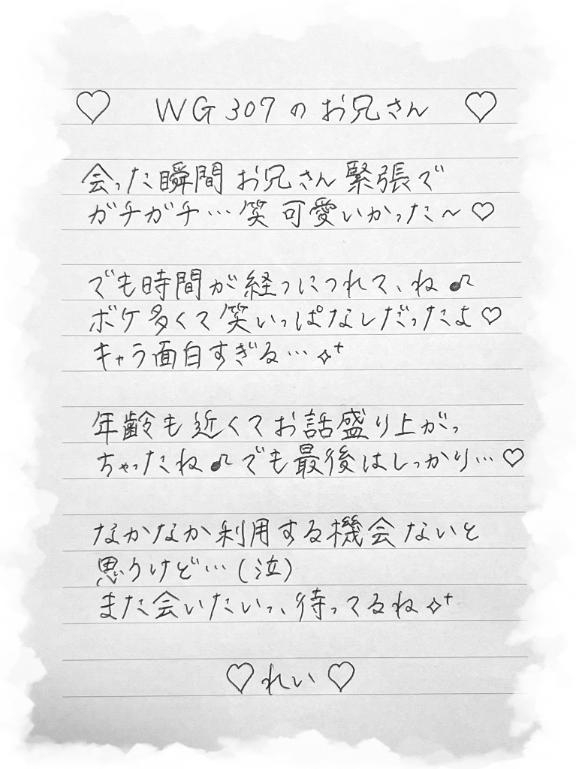 ♡ WG 307 のお兄さん ♡
会った瞬間お兄さん緊張で
ガチガチ…笑 可愛いかった〜♡
でも時間が経つにつれて、ね♪
ボケ多くて笑いっぱなしだったよ♡
キャラ面白すぎる…✧⁺
年齢も近くてお話盛り上がっ
ちゃったね♪でも最後はしっかり…♡
なかなか利用する機会ないと
思うけど…(泣)
また会いたいっ、待ってるね✧⁺
♡れい♡